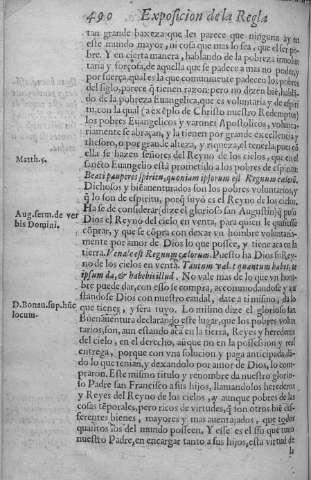 490 Exposicion de la Regla
tan grande baxeza que les parece que ninguna ay en
este mundo mayor, ni cosa que mas lo sea, que el ser po-
bre. Y en cierta manera, hablando de la pobreza inuolun
taria y forçosa, de aquella que se padece a mas no poder, y
por fuerça, qual es la que comunmẽte padecen los pobres
del siglo, parece q̃ tienen razon: pero no dizen biẽ, hablã-
do de la pobreza Euangelica, que es voluntaria y de espiri
tu, con la qual (a exẽplo de Christo nuestro Redemptor)
los pobres Euangelicos y varones Apostolicos, volunta-
riamente se abraçan, y la tienen por grande excellencia y
thesoro, o por grande alteza, y riqueza, el tenerla, pues cõ
ella se hazen señores del Reyno de los cielos, que en el
sancto Euangelio està prometido a los pobres de espiritu:
Matth. 5.
Beati pauperes spiritu, quoniam ipsorum est Regnum cælorũ.
Dichosos y biẽauenturados son los pobres voluntarios, y
q̃ lo son de espiritu, porq̃ suyo es el Reyno de los cielos.
Ha se de considerar (dize el glorioso san Augustin) q̃ puso
Aug. serm. de ver
bis Domini.
Dios el Reyno del cielo en venta, para quien le quisiesse
cõprar, y que se cõpra con dexar vn hombre voluntaria-
mente por amor de Dios lo que possee, y tiene aca en la
tierra. Venale est Regnum cælorum. Puesto ha Dios su Rey-
no de los cielos en venta. Tantum valet quantum habes, te
ipsum da, & habebis illud. No vale mas de lo que vn hom-
bre puede dar, con esso se compra, accomodandose y aju
standose Dios con nuestro caudal, date a ti mismo, da lo
que tienes, y sera tuyo. Lo mismo dize el glorioso san
D. Bonau. sup. hũc
locum.
Buenauentura declarando este lugar, que los pobres volun
tarios, son, aun estando acà en la tierra, Reyes y herederos
del cielo, en el derecho, aunque no en la possession y real
entrega, porque con vna solucion y paga anticipada, dã-
do lo que tenian, y dexandolo por amor de Dios, lo com-
praron. Este mismo titulo y renombre da nuestro glorio-
so Padre san Francisco a sus hijos, llamandolos herederos
y Reyes del Reyno de los cielos, y aunque pobres de las
cosas tẽporales, pero ricos de virtudes, q̃ son otros biẽ dif-
ferentes bienes, mayores y mas auentajados, que todos
quantos los del mundo posseen. Y esse es el fin que tuuo
nuestro Padre, en encargar tanto a sus hijos, esta virtud de
la